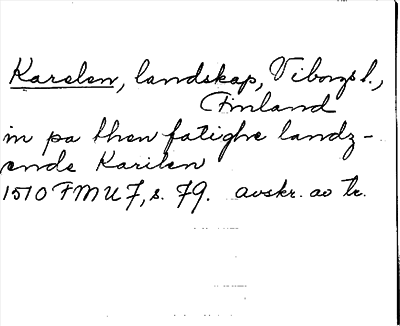 Karelen, landskap, Viborgs l.,
Finland
in pa then fatighe landz-
ende Karilen
1510 FMU 7, s. 79. avskr. av tr.